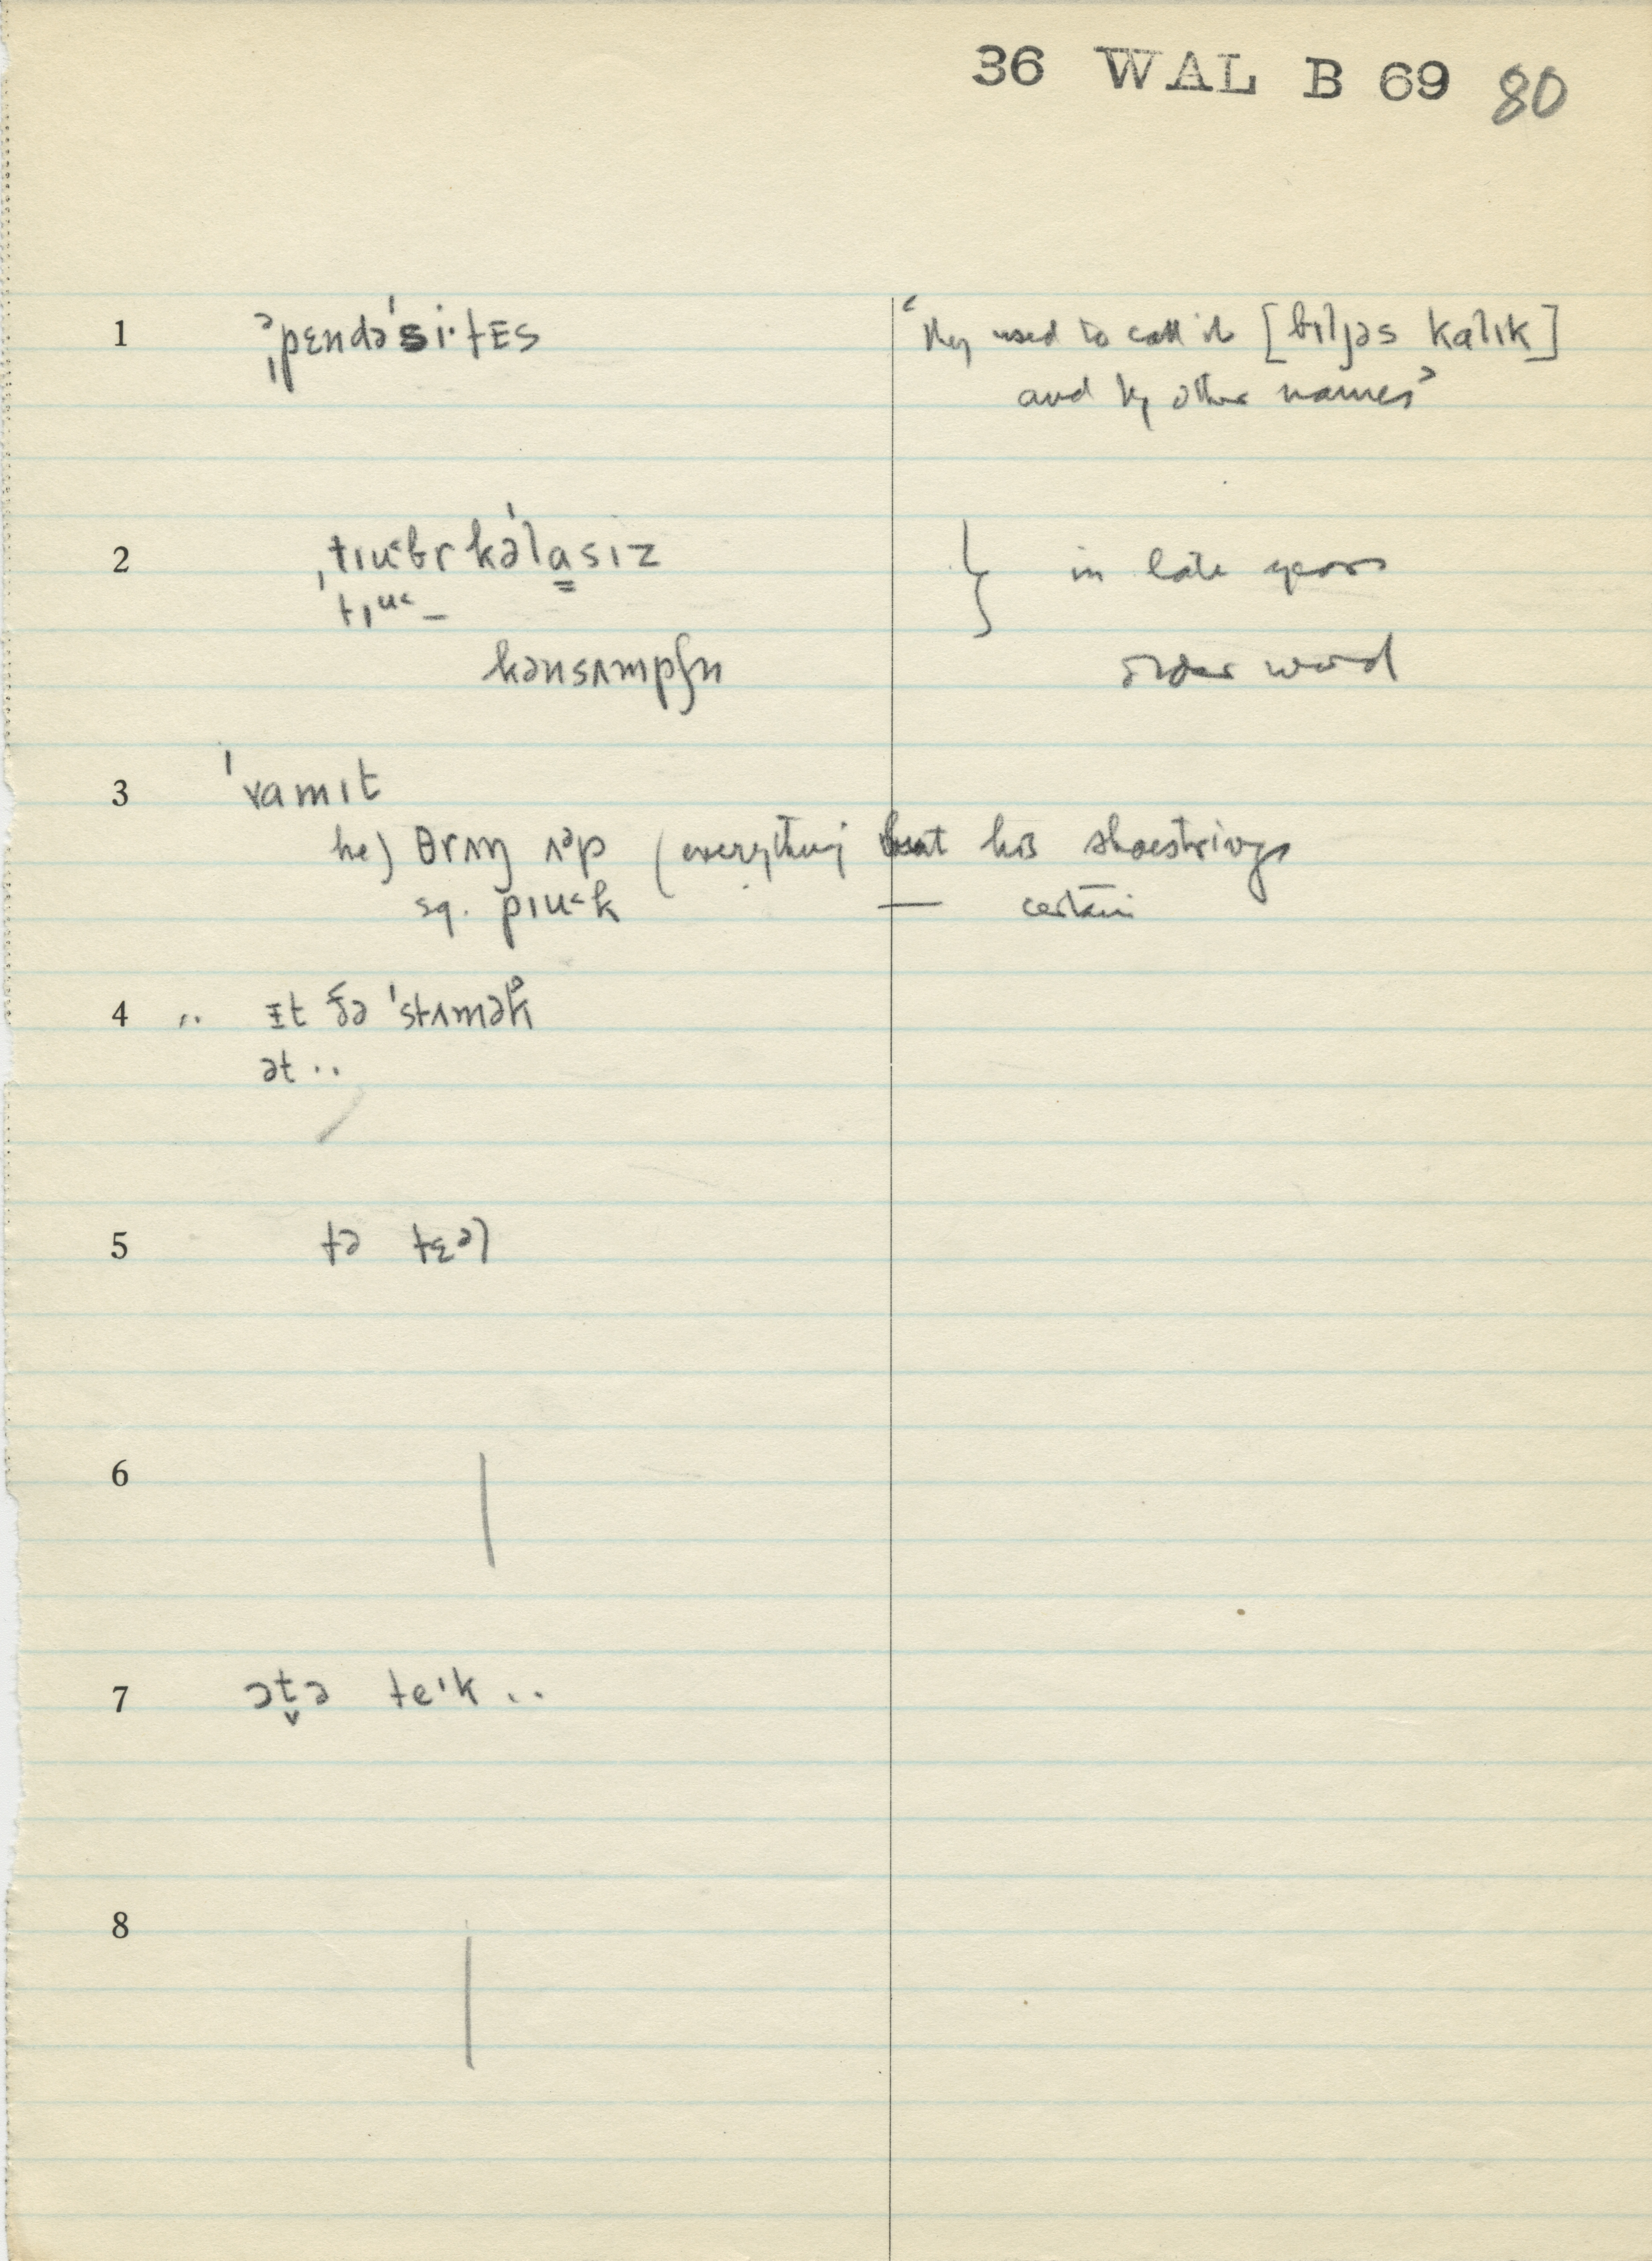 36 WAL B 69 80
1 əˌpɛndəˈsi·tɛs ‘they used to call it [bɪljəs kalɪk]
and by other names’
2 ˌtɪu˂br kəˈlasɪz } in late years
tɪu˂ –
kənsʌmpʃn older word
3 ˈvamɪt
he) θrʌŋ ʌᵊp (everything but his shoestrings
sq. pɪu˂k — certain
4 .. ɪt ðə ˈstʌmək
ət ..
5 tə tɛəl
6
7 ətə teɪk ..
8